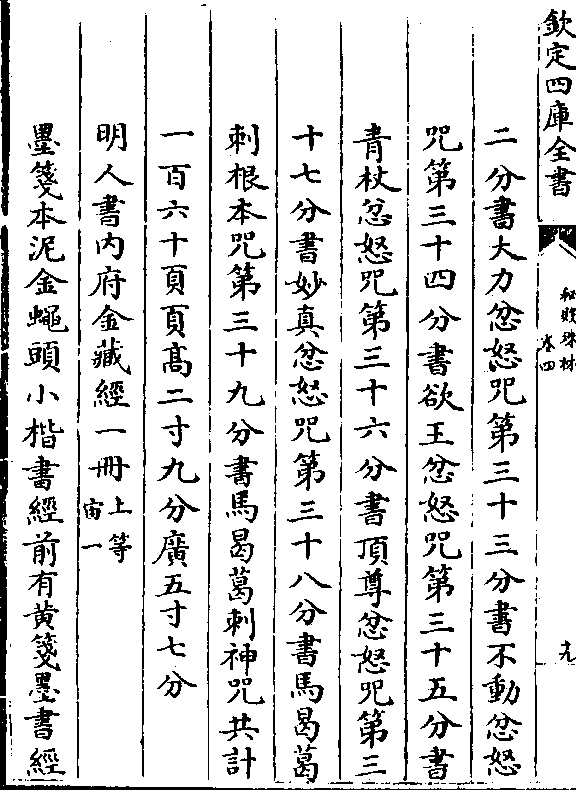 欽定四庫全書
秘殿珠林
卷四
十九
二分書大力忿怒咒第三十三分書不動忿怒
咒第三十四分書欲王忿怒咒第三十五分書
青杖忿怒咒第三十六分書頂尊忿怒咒第三
十七分書妙真忿怒咒第三十八分書馬曷葛
刺根本咒第三十九分書馬曷葛刺神咒共計
一百六十頁頁高二寸九分廣五寸七分
明人書内府金藏經一冊上等宙一
墨箋本泥金蠅頭小楷書經前有黄箋墨書經